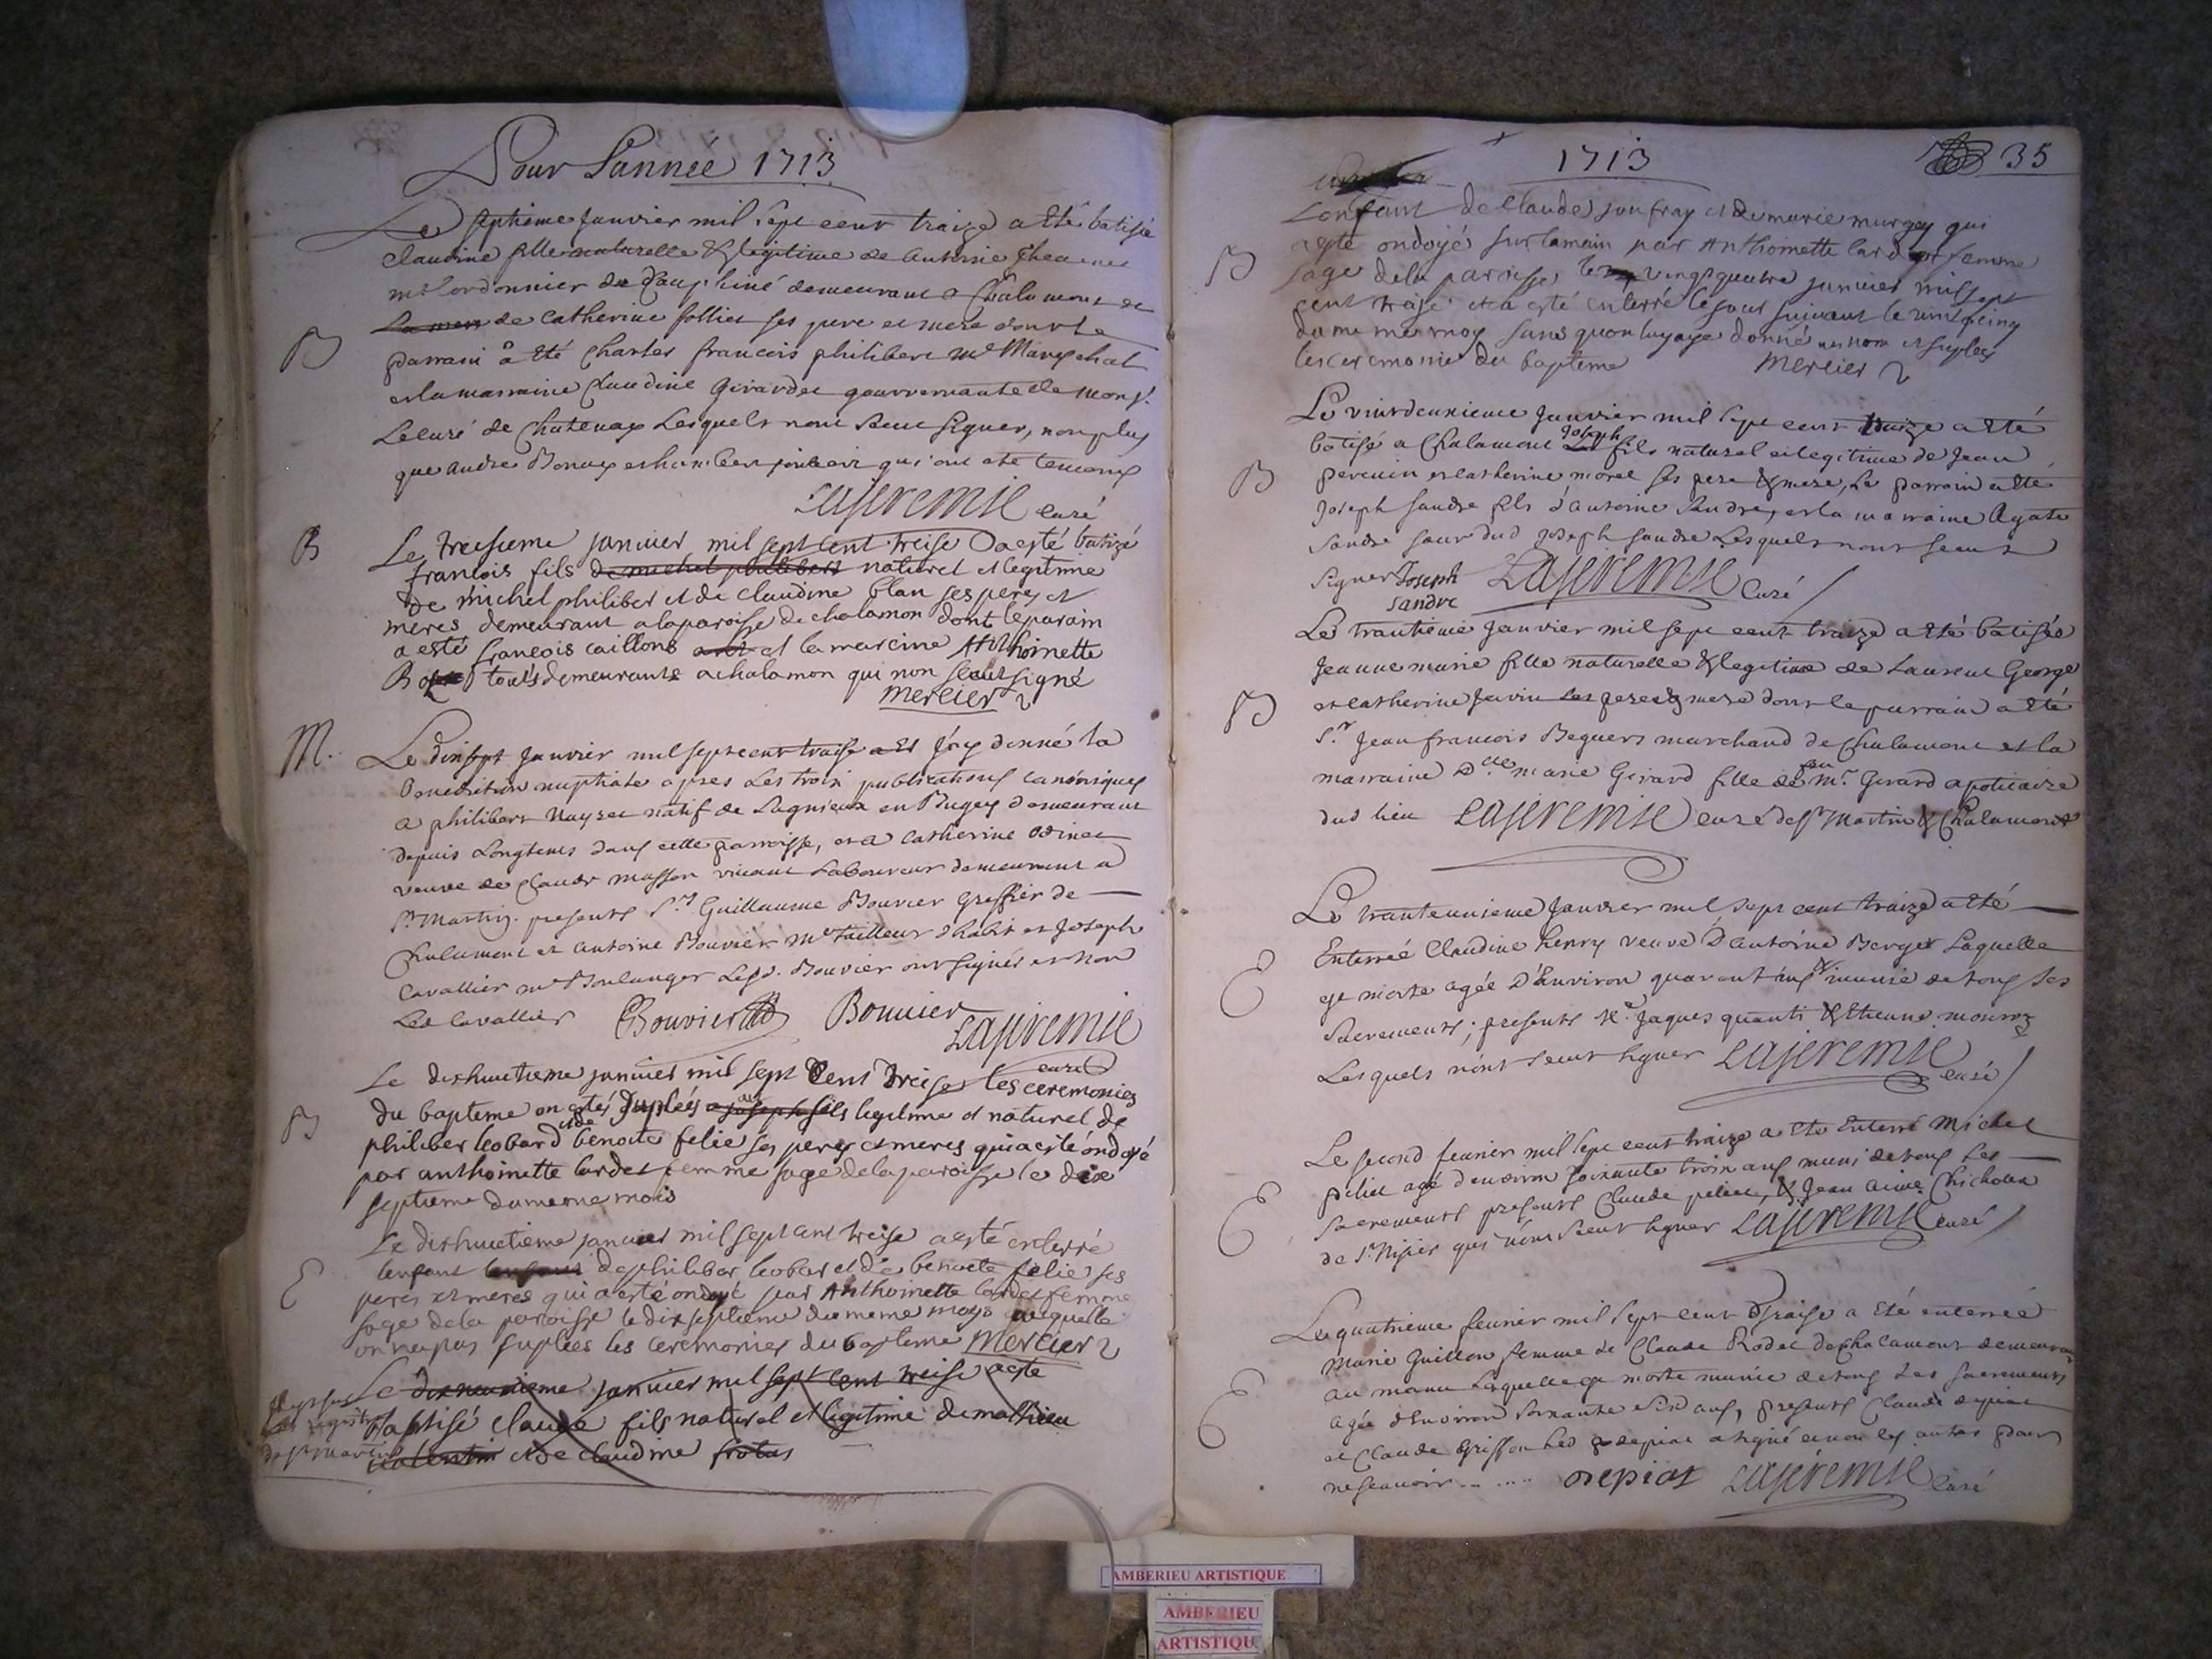 Pour L'année 1713
Le septieme Janvier mil sept cent traize a Eté batisée
Claudine fille naturelle & legitime de Antoine
me Cordonnier de Dauphiné demeurant a Chalamont et
La mere de Catherine follier ses pere et mere dont Le
B
parrain a Eté Charles francois philibert me Marechal
et la marraine Claudine Girardet gouvernante de monsr.
Le Curé de Chatenay Lesquels n'ont sceu signer, non plus
que andré Bonnay et humbert qui ont eté temoins
Lajeremie Curé
B
Le treisieme janvier mil sept cent treise a esté batizé
francois fils de michel philibert naturel et legitime
De michel philiber et de claudine blan ses peres et
meres demeurant a la paroisse de chalamon dont le parain
a esté francois caillons et la mareine Anthoinette
touts demeurants a chalamon qui non sceut signé
mercier
M.
Le dixsept Janvier mil sept cent traise a Et J'ay donné la
Benediction nuptiale apres Les trois publications canoniques
a philibert Nayret natif de Lagnieux en Bugey demeurant
depuis Longtems dans cette parroisse, et a Catherine odinet
veuve de Claude masson vivant Laboureur demeurant a
St Martin. presents Sr. Guillaume Bouvier Greffier de
Chalamont et Antoine Bouvier me tailleur d'habit et Joseph
Cavallier me Boulanger Lesd. Bouvier ont signés et non
Led Cavallier Bouvier Bouvier
Lajeremie
curé
Le dixhuitieme janvier mil sept Cent Treise les ceremonies
B
du bapteme on etés suplées a joseph au fils legitime et naturel de
philiber leobard et de benoite felie ses peres et meres qui a esté ondoyé
par anthoinette lardet femme sage de la paroisse le dix
septieme du meme mois
Le dixhuictieme janvier mil sept cent treise a esté enterré
E
lenfant lenfant de philiber leobar et de benoite felie ses
peres et meres qui a esté ondoyé par Anthoinette lardet femme
sage de la paroisse le dixseptieme du meme moys auquelle
on na pas suplées les ceremonies du bapteme Mercier
Le dixneuvieme janvier mil sept cent treise a esté
Baptisé claude fils naturel et legitime de mathieu
et de claudine frotas
1713
35
Lenfant de Claude jonfray et de marie murgey qui
a esté ondoyé sur la main par Anthoinette lardet femme
B
sage de la paroisse le vingt quatre janvier mil sept
cent treise et a esté enterré le jour suivant le vint cinq
du meme moy sans quon luy aye donné un nom et suplees
les ceremonie du bapteme Mercier
Le vint deuxieme Janvier mil sept cent traize a Eté
batisé a Chalamont Joseph fils naturel et legitime de Jean
B
pervuin et Catherine morel ses pere & mere, Le parrain a Eté
Joseph sandre fils d'antoine Sandre, et la marraine Agate
Sandre soeur dud Joseph sandre Lesquels n'ont sceu
signer Joseph
sandre
Lajeremie Curé
Le trantieme Janvier mil sept cent traize a Eté batisée
Jeanne marie fille naturelle & legitime de Laurent George
B
et Catherine Javin ses pere & mere dont le parrain a Eté
Sr. Jean francois Beguers marchand de Chalamont et la
marraine Dlle marie Girard fille de feu mr Girard apoticaire
dud lieu Lajeremie curé de St martin & Chalamont
Le trante unieme Janvier mil sept cent traize a Eté
E
Enterrée Claudine henry veuve D'antoine Berger Laquelle
est morte agée D'Environ quarant'ans & munie de tous ses
sacrements; presents Jaques quanti & Etienne
Lesquels n'ont sceut signer Lajeremie curé
Le second fevrier mil sept cent traize a Eté Enterré Michel
E
pelliet agé d'environ soixante trois ans muni de tous Les
sacrements presents Claude pelliet, & Jean aimé Chichoux
de St Nisier qui n'ont sceut signer Lajeremie curé
Le quatrieme fevrier mil sept cent Traise a Eté enterrée
marie Guillon femme de Claude Rodet de Chalamont demeurant
E
au Laquelle est morte munie de tous Les sacrements
agée d'Environ soixante six ans, presents Claude depiat
et Claude Griffon Led depiat a signé et non les autres pour
ne scavoir ...... depiat Lajeremie curé
AMBERIEU ARTISTIQUE
AMBERIEU
ARTISTIQU